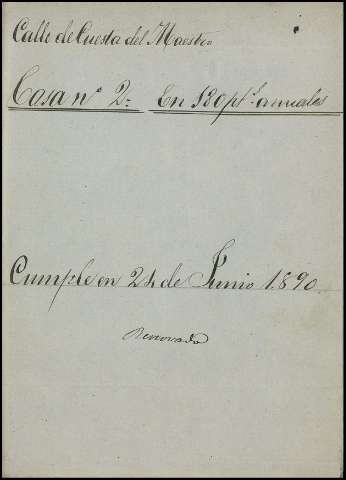 Calle de Cuesta del Maestro
Casa nº 2= En 180 ptˢ. anuales
Cumple en 24 de Junio 1.890.
Renovado